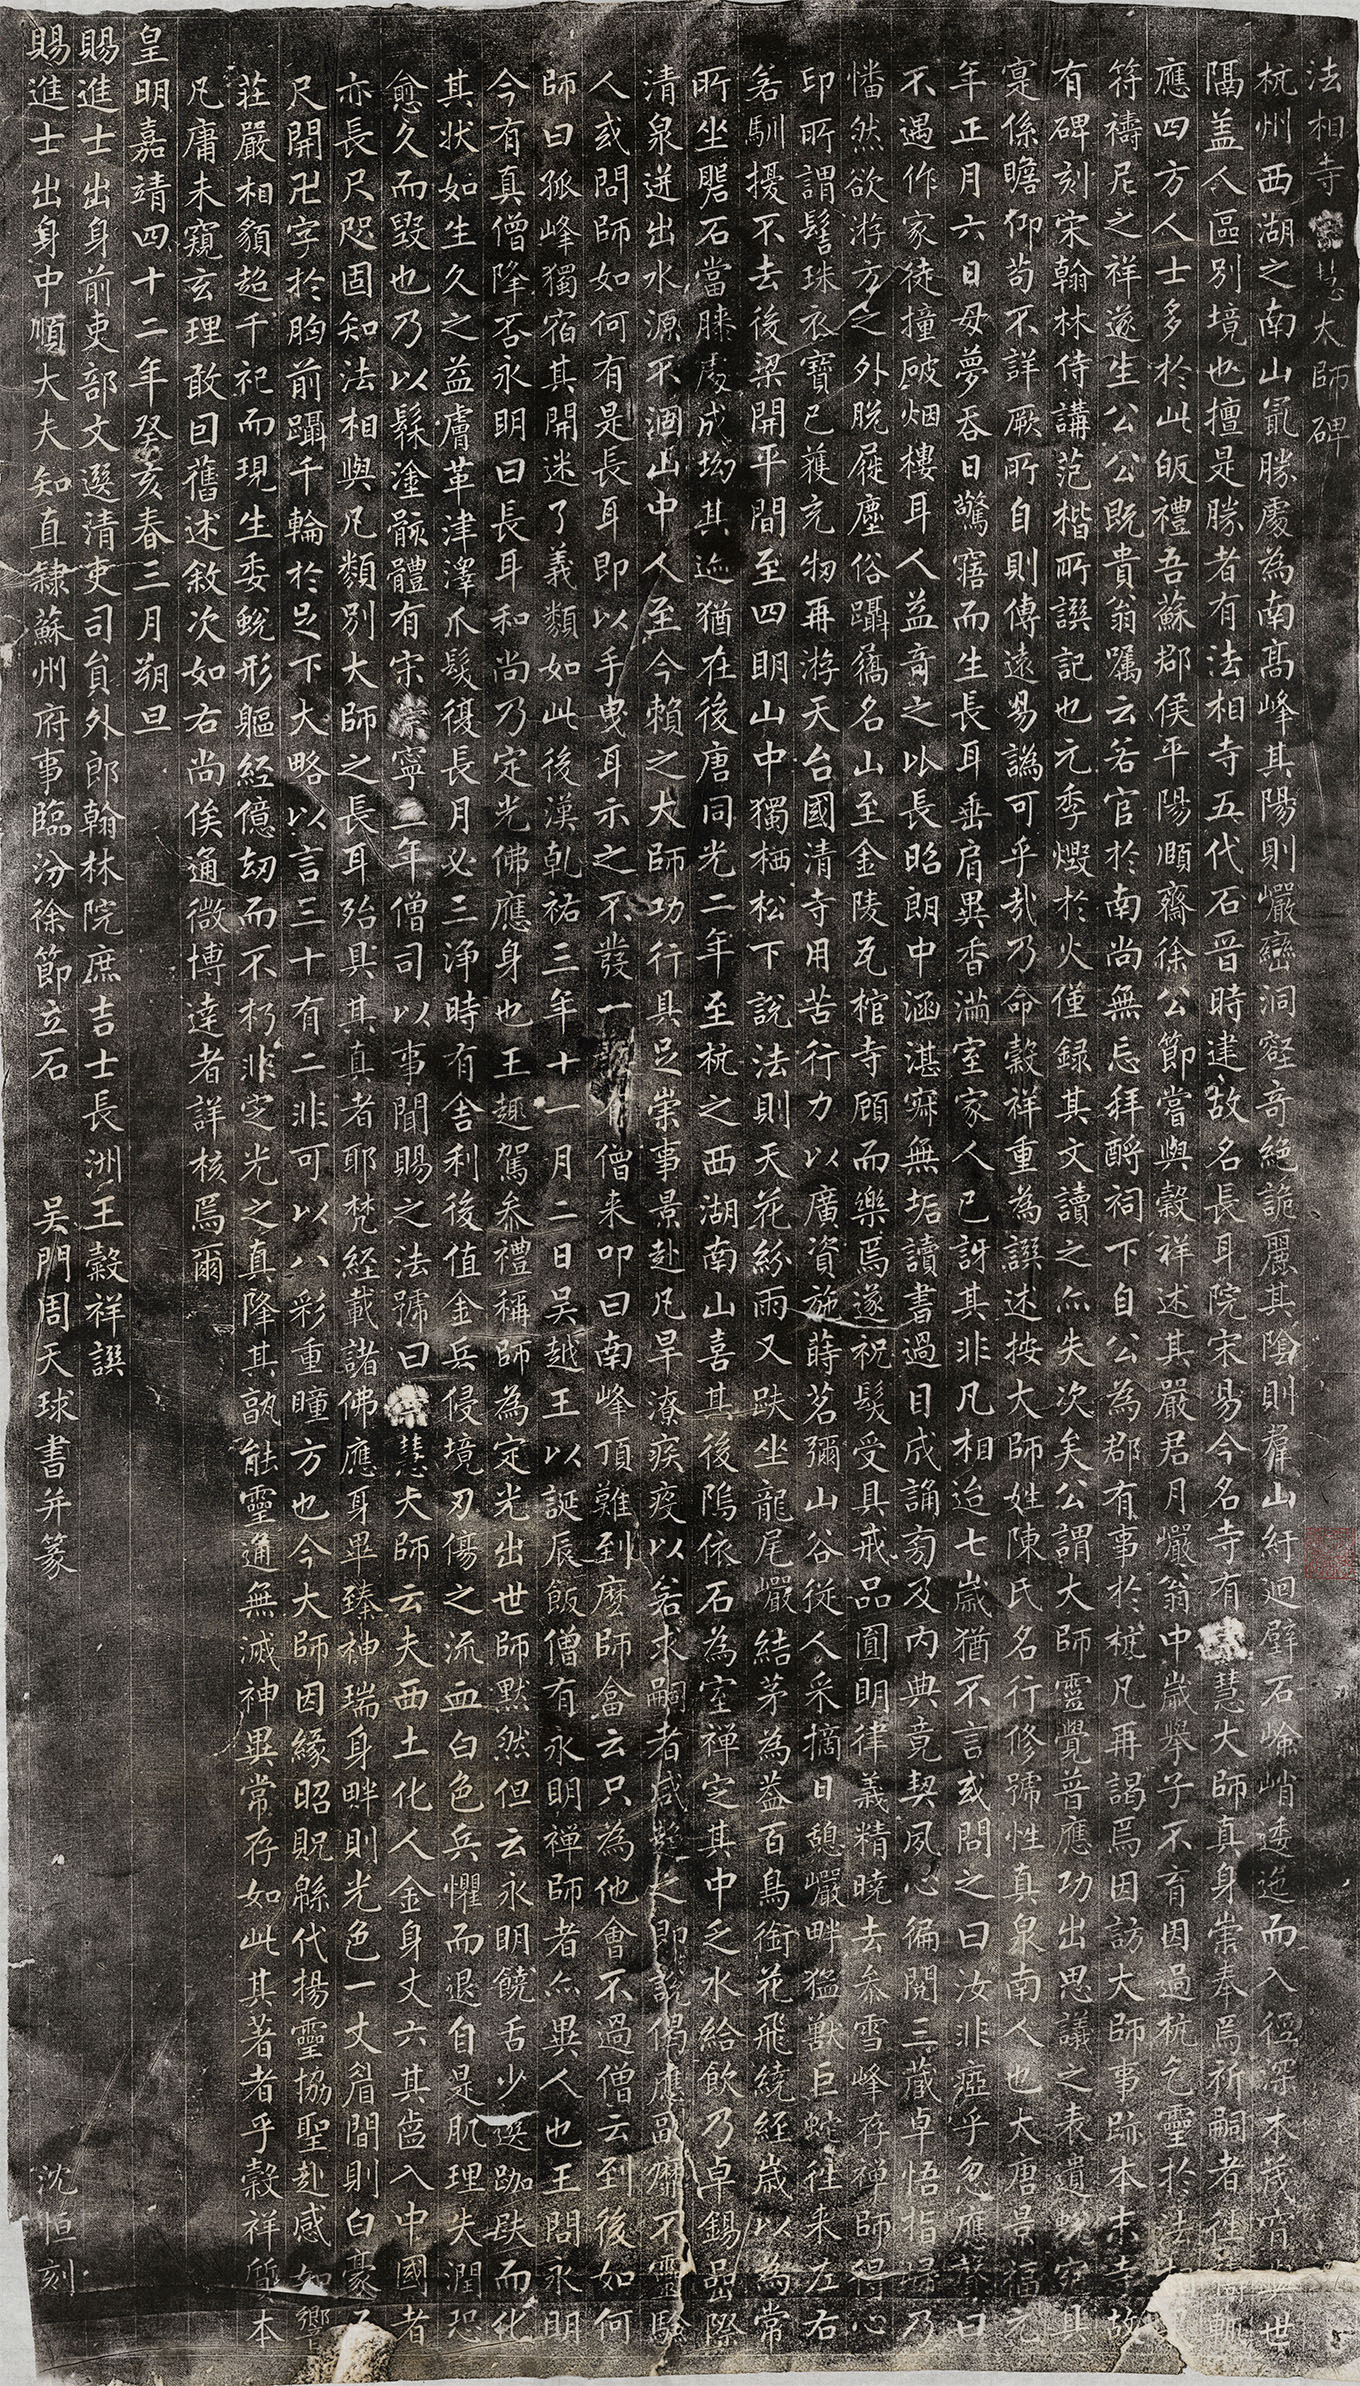 法相寺宗慧大師碑
杭州西湖之南山最勝處為南高峰其陽則巖巒洞壑奇絕詭麗其陰則羣山紆迴壁石嶮峭逶迤而入徑深木茂窅與世
隔盖人區別境也擅是勝者有法相寺五代石晋時建故名長耳院宋易今名寺有宗慧大師真身崇奉焉祈嗣者徃輒
應四方人士多於此皈禮吾蘇郡侯平陽頤齋徐公節嘗與穀祥述其嚴君月巖翁中歲舉子不育因過杭乞靈於法
符禱尼之祥遂生公公既貴翁囑云若官於南尚無忘拜酹祠下自公為郡有事於杭凡再謁焉因訪大師事跡本末寺故
有碑刻宋翰林侍講范楷所譔記也元季燬於火僅録其文讀之亦失次矣公謂大師靈覺普應功出思議之表遺蛻宛其
寔係瞻仰苟不詳厥所自則傳遠易譌可乎哉乃命穀祥重為譔述按大師姓陳氏名行修號性真泉南人也大唐景福元
年正月六日母夢吞日驚寤而生長耳垂肩異香滿室家人已訝其非凡相迨七歲猶不言或問之曰汝非瘂乎忽應聲曰
不遇作家徒撞破烟樓耳人益奇之以長昭朗中涵湛寂無垢讀書過目成誦旁及內典竟契夙心徧閱三藏卓悟指歸乃
幡然欲游方之外脫屣塵俗躡屩名山至金陵瓦棺寺顧而樂焉遂祝髮受具戒品圓明律義精曉去叅雪峰存禪師得心
印所謂髻珠衣寶已獲充物再游天台國清寺用苦行力以廣資施蒔茗彌山谷從人采摘日憩巖畔猛獸巨蛇徃来左右
若馴擾不去後梁開平間至四明山中獨栖松下說法則天花紛雨又趺坐龍尾巖結茅為葢百鳥銜花飛繞経歲以為常
所坐磐石當膝處成坳其迹猶在後唐同光二年至杭之西湖南山喜其後隖依石為室禅定其中乏水給飲乃卓錫嵒際
清泉迸出水源不涸山中人至今賴之大師功行具足崇事景赴凡旱潦疾疫以若求嗣者咸趍之即說偈應副靡不靈驗
人或問師如何有是長耳即以手曳耳示之不發一語有僧来叩曰南峰頂難到麽師畣云只為他會不過僧云到後如何
師曰孤峰獨宿其開迷了義類如此後漢乾祐三年十一月二日吳越王以誕辰飯僧有永明禅師者亦異人也王問永明
今有真僧降否永明曰長耳和尚乃定光佛應身也王趣駕叅禮稱師為定光出世師默然但云永明饒舌少選跏趺而化
其狀如生久之益膚革津澤爪髮復長月必三浄時有舍利後值金兵侵境刃傷之流血白色兵懼而退自是肌理失潤恐
愈久而毀也乃以髹塗骸體有宋崇寧三年僧司以事聞賜之法號曰宗慧大師云夫西土化人金身丈六其齒入中國者
亦長尺咫固知法相與凡類別大師之長耳殆具其真者耶梵経載諸佛應身畢臻神瑞身畔則光色一丈眉間則白豪五
尺開卍字於胸前躡千輪於足下大略以言三十有二非可以八彩重瞳方也今大師因緣昭貺緜代揚靈協聖赴感如響
莊嚴相貌超千祀而現生委蛻形軀経億刼而不朽非定光之真降其孰能靈通無滅神異常存如此其著者乎穀祥質本
凡庸未窺玄理敢曰舊述敘次如右尚俟通微博達者詳核焉爾
皇明嘉靖四十二年癸亥春三月朔旦
賜進士出身前吏部文選清吏司員外郎翰林院庶吉士長洲王穀祥譔
賜進士出身中順大夫知直隸蘇州府事臨汾徐節立石　吳門周天球書并篆　沈恒刻